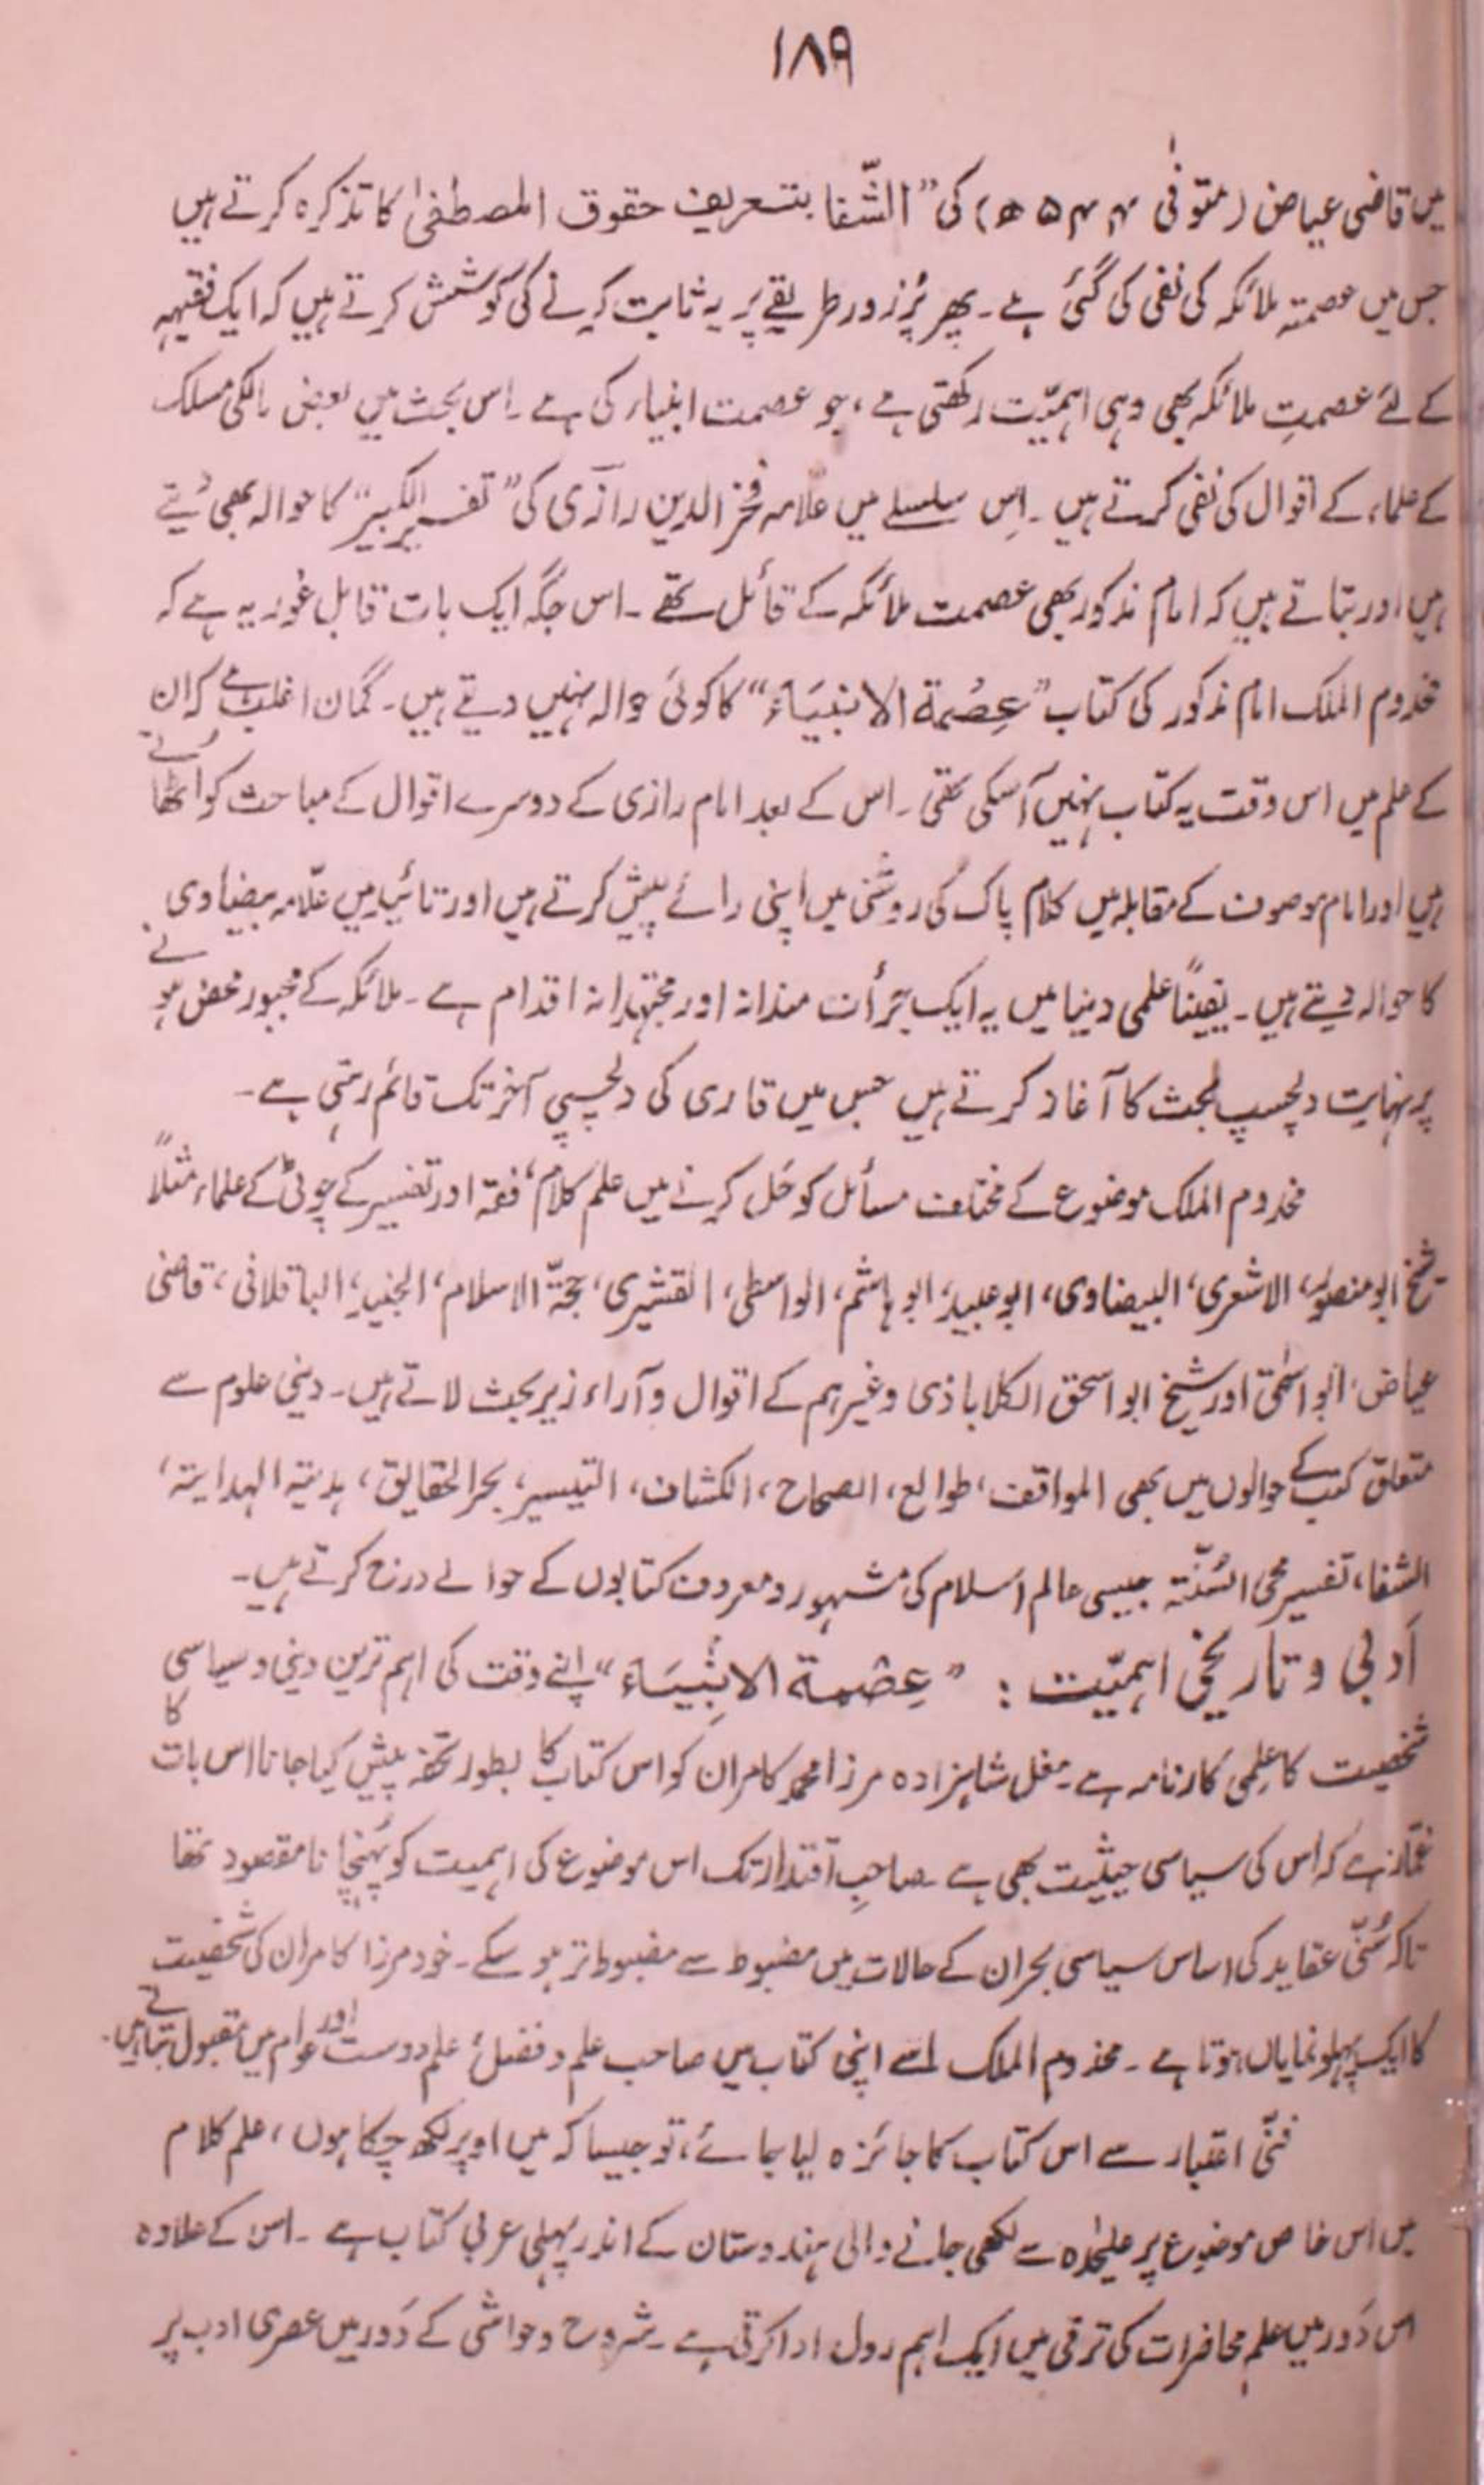 ۱۸۹
میں قاضی عیاض (متوفیٰ ۵۴۴ ھ) کی ”الشّفا بتعریف حقوق المصطفیٰ کا تذکرہ کرتے ہیں
جس میں عصمتہ ملائکہ کی نفی کی گئی ہے۔ پھر پُرزور طریقے پر یہ ثابت کرنے کی کوشش کرتے ہیں کہ ایک فقیہہ
کے لئے عصمتِ ملائکہ بھی وہی اہمیّت رکھتی ہے، جو عصمت انبیاء کی ہے۔ اس بحث میں بعض مالکی مسلک
کے علماء کے اقوال کی نفی کرتے ہیں۔ اِس سلسلے میں علّامہ فخرالدین رازی کی ”تفسیر الکبیر“ کا حوالہ بھی دیتے
ہیں اور بتاتے ہیں کہ امام مذکور بھی عصمت ملائکہ کے قائل تھے۔ اس جگہ ایک بات قابل غور یہ ہے کہ
مخدوم الملک امام مذکور کی کتاب ”عِصْمة الانبیَاء“ کا کوئی حوالہ نہیں دیتے ہیں۔ گمان اغلب ہے کہ ان
کے علم میں اس وقت یہ کتاب نہیں آسکی تھی۔ اس کے بعد امام رازی کے دوسرے اقوال کے مباحث کو اٹھاتے
ہیں اور امام موصوف کے مقابلہ میں کلام پاک کی روشنی میں اپنی رائے پیش کرتے ہیں اور تائید میں علّامہ بیضاوی
کا حوالہ دیتے ہیں۔ یقیناً علمی دنیا میں یہ ایک جرأت مندانہ اور مجتہدانہ اقدام ہے۔ ملائکہ کے مجبور محض ہونے
پر نہایت دلچسپ بحث کا آغاز کرتے ہیں جس میں قاری کی دلچسپی آخر تک قائم رہتی ہے۔
مخدوم الملک موضوع کے مختلف مسائل کو حَل کرنے میں علم کلام، فقہ اور تفسیر کے چوٹی کے علماء مثلاً
شیخ ابو منصور، الاشعری، البیضاوی، ابو عبید، ابو ہاشم، الواسطی، القشیری، حجّۃ الاسلام، الجنید، الباقلانی، قاضی
عیاض، ابو اسحٰق اور شیخ ابو اسحق الکلاباذی وغیرہم کے اقوال و آراء زیر بحث لاتے ہیں۔ دینی علوم سے
متعلق کتب کے حوالوں میں بھی المواقف، طوالع، الصحاح، الکشاف، التیسیر، بحر الحقایق، ہدیتہ الہدایتہ،
الشفا، تفسیر محی السُنّتہ جیسی عالم اسلام کی مشہور و معروف کتابوں کے حوالے درج کرتے ہیں۔
اَدبی و تاریخی اہمیّت : ”عِصْمة الانْبِیَاء“ اپنے وقت کی اہم ترین دینی و سیاسی
شخصیت کا عِلمی کارنامہ ہے۔ مغل شاہزادہ مرزا محمد کامران کو اس کتاب کا بطور تحفہ پیش کیا جانا اس بات کا
غمّاز ہے کہ اس کی سیاسی حیثیت بھی ہے۔ صاحبِ اقتدار تک اس موضوع کی اہمیت کو پہُنچانا مقصود تھا
تاکہ سُنّی عقاید کی اساس سیاسی بحران کے حالات میں مضبوط سے مضبوط تر ہو سکے۔ خود مرزا کامران کی شخصیت
کا ایک پہلو نمایاں ہوتا ہے۔ مخدوم الملک اسے اپنی کتاب میں صاحب علم و فضل، علم دوست اور عوام میں مقبول بتاتے ہیں۔
فنّی اعتبار سے اس کتاب کا جائزہ لیا جائے، تو جیسا کہ میں اوپر لکھ چکا ہوں، علم کلام
میں اس خاص موضوع پر علیٰحدہ سے لکھی جانے والی ہندوستان کے اندر پہلی عربی کتاب ہے۔ اس کے علاوہ
اس دَور میں علم محاضرات کی ترقی میں ایک اہم رول ادا کرتی ہے۔ شروح و حواشی کے دَور میں عصری ادب پر